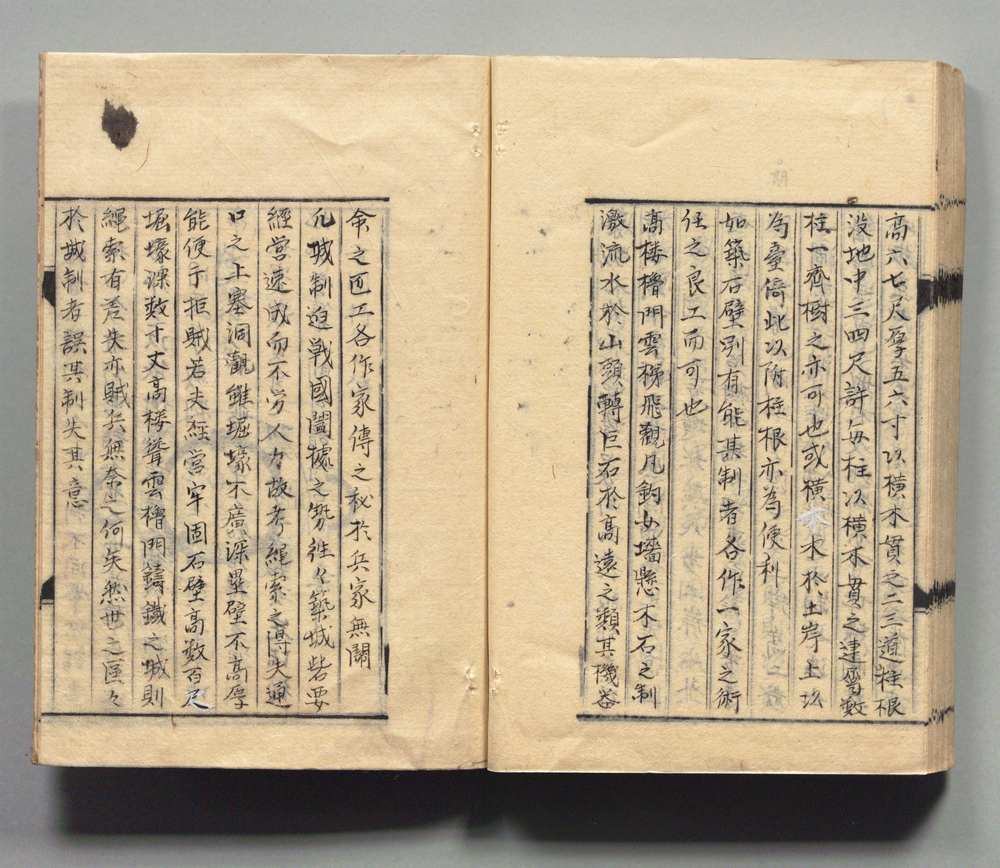 高六七尺孚五六寸以橫木貫之二三道柱根
沒地中三四尺許每柱以橫木貫之連屬數
柱一齊樹之亦可也或橫木木於土岸上以
為臺倚此以附柱根亦為便利
如築石壁則有能其制者各作一家之術
任之良工而可也
高楼櫓門雲梯飛觀凡鈞女墻懸木石之制
激流水於山頭轉巨石於高遠之類其機器
余之匠工各作家傳之秘於兵家無關
凡城制迫戦國闘據之勢往々築城砦要
經營速成而不労人力故考繩索之得失通
口之上塞洞觀雖堀壕不廣深塁壁不高厚
能便于拒賊若夫經営牢固石壁高数百尺
堀壕深数十丈高楼聳雲櫓門鋳鐵之城則
繩索有差失亦賊兵無奈之何矣然世之區々
於城制者誤其制失其意